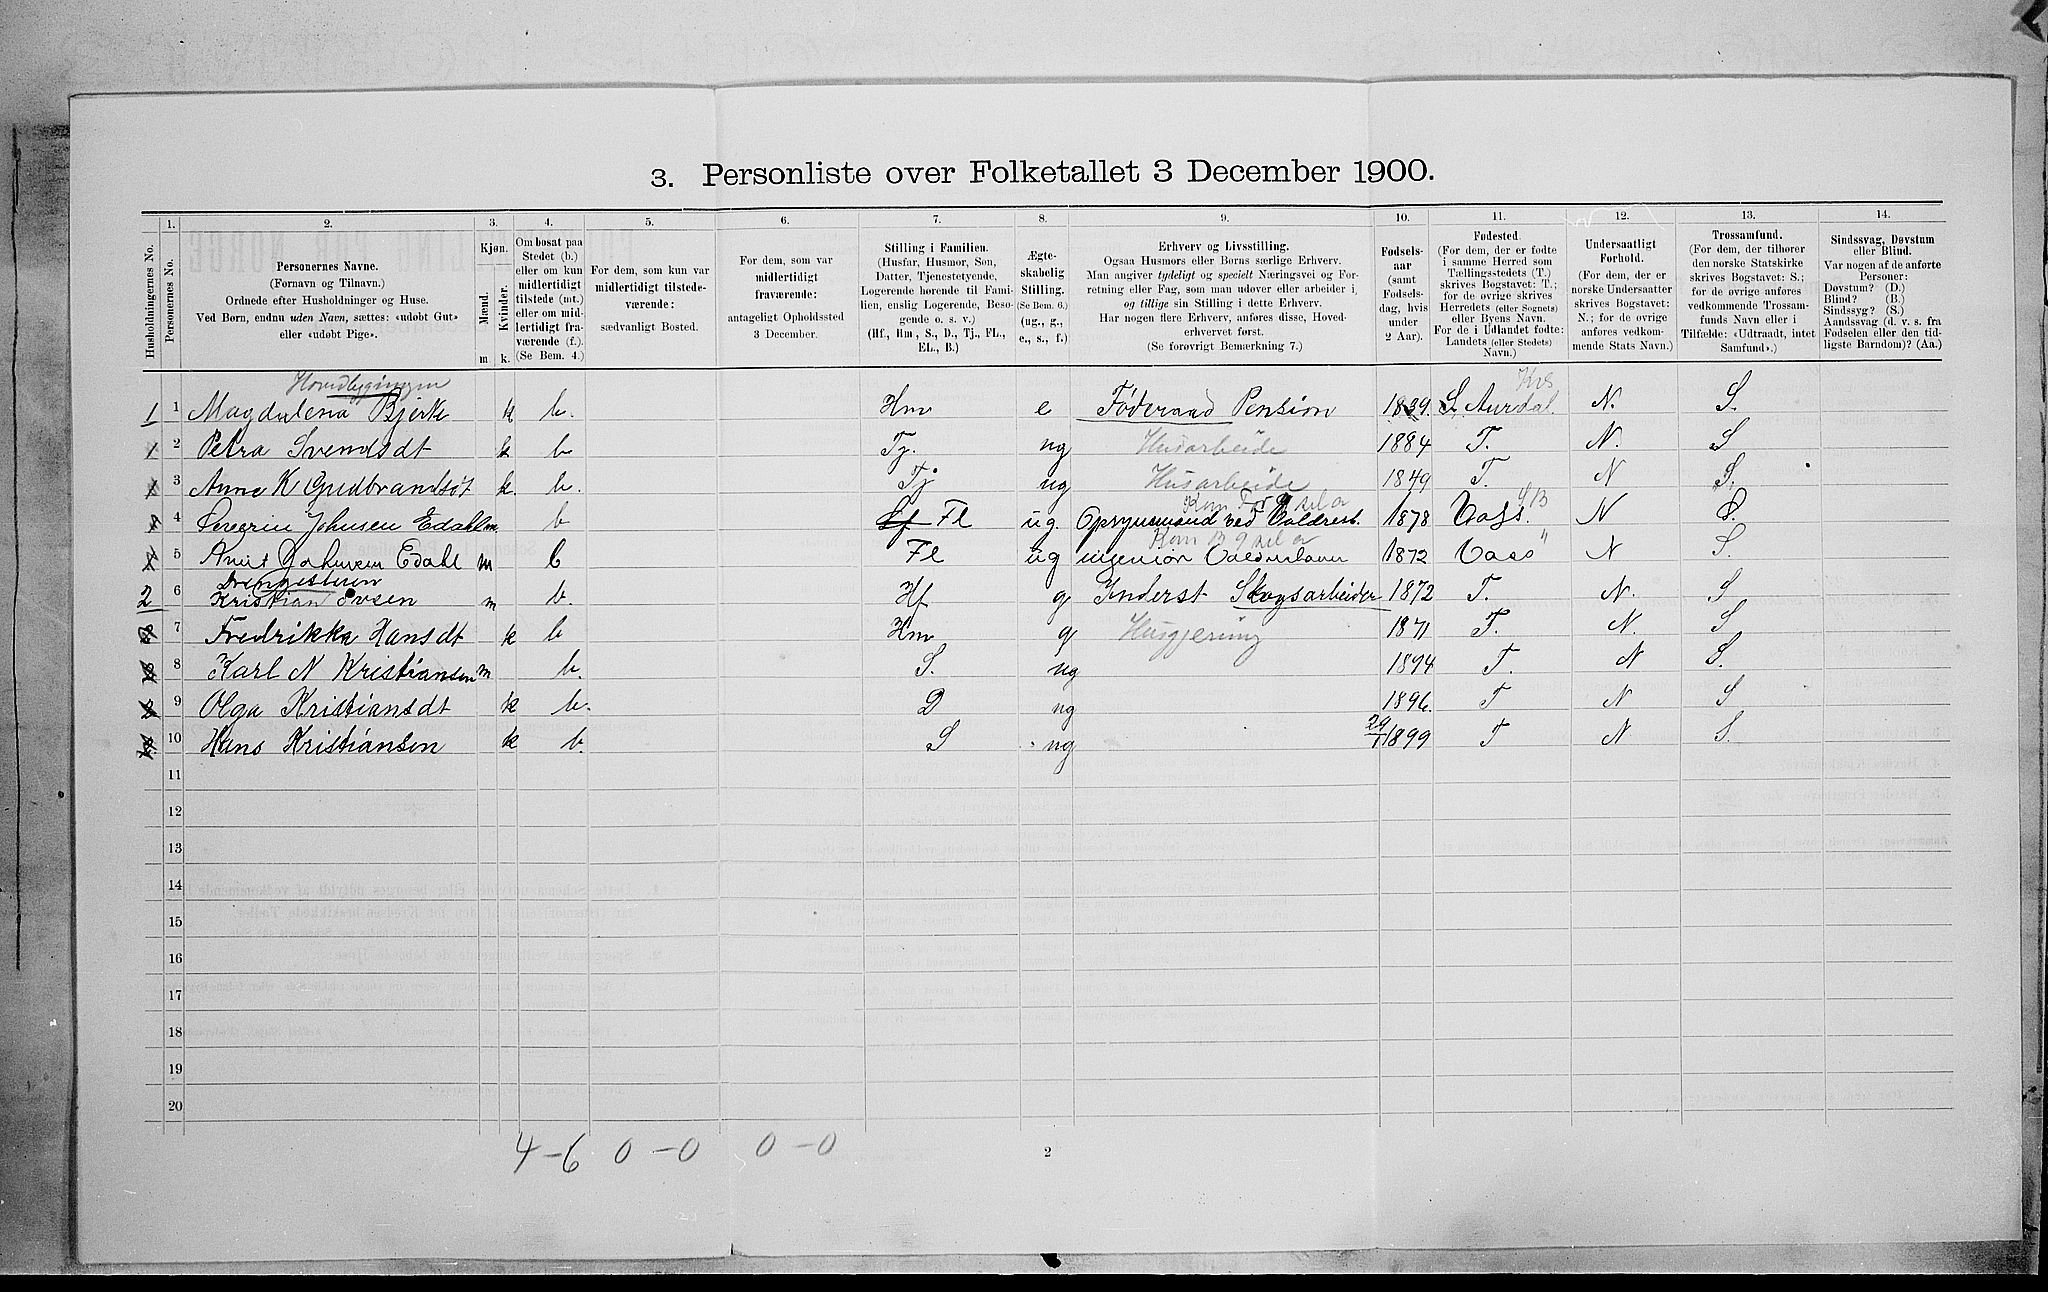 3. Personliste over Folketallet 3 December 1900.
1. 2. 3. 4. 5. 6. 7. 8. 9. 10. 11. 12. 13. 14.
Husholdningernes No.
Personernes No.
Personernes Navne.
(Fornavn og Tilnavn.)
Ordnede efter Husholdninger og Huse.
Ved Børn, endnu uden Navn, sættes: «udøbt Gut»
eller «udøbt Pige».
Kjøn.
Mænd.
Kvinder.
m k.
Om bosat paa
Stedet (b.)
eller om kun
midlertidigt
tilstede (mt.)
eller om mid-
lertidigt fra-
værende (f.).
(Se Bem. 4.)
For dem, som kun var
midlertidigt tilstede-
værende:
sædvanligt Bosted.
For dem, som var
midlertidigt
fraværende:
antageligt Opholdssted
3 December.
Stilling i Familien.
(Husfar, Husmor, Søn,
Datter, Tjenestetyende,
Logerende hørende til Fami-
lien, enslig Logerende, Besø-
gende o. s. v.)
(Hf., Hm., S., D., Tj., FL.,
EL., B.)
Ægte-
skabelig
Stilling.
(Se Bem. 6.)
(ug., g.,
e., s., f.)
Erhverv og Livsstilling.
Ogsaa Husmors eller Børns særlige Erhverv.
Man angiver tydeligt og specielt Næringsvei og For-
retning eller Fag, som man udøver eller arbeider i,
og tillige sin Stilling i dette Erhverv.
Har nogen flere Erhverv, anføres disse, Hoved-
erhvervet først.
(Se forøvrigt Bemærkning 7.)
Fødsels-
aar
(samt
Fødsels-
dag, hvis
under
2 Aar).
Fødested.
(For dem, der er fødte
i samme Herred som
Tællingsstedets (T.)
skrives Bogstavet: T.;
for de øvrige skrives
Herredets (eller Sognets)
eller Byens Navn.
For de i Udlandet fødte:
Landets (eller Stedets)
Navn.)
Undersaatligt
Forhold.
(For dem, der er
norske Undersaatter
skrives Bogstavet:
N.; for de øvrige
anføres vedkom-
mende Stats Navn.)
Trossamfund.
(For dem, der tilhører
den norske Statskirke
skrives Bogstavet: S.;
for de øvrige anføres
vedkommende Trossam-
funds Navn eller i
Tilfælde: «Udtraadt, intet
Samfund».)
Sindssvag, Døvstum
eller Blind.
Var nogen af de anførte
Personer:
Døvstum? (D.)
Blind? (B.)
Sindssyg? (S.)
Aandssvag (d. v. s. fra
Fødselen eller den tid-
ligste Barndom)? (Aa.)
Hovedbygningen
1 1 Magdalena Bjerke k b. Hm e Føderaad Pension 1839. S. Aurdal. N. S.
1 2 Petra Svendsdt k b Tj. ug Husarbeide 1884 T. N. S
3 Anne K Gudbrandsdt k. b. Tj ug Husarbeide 1849 T. N S.
4 Johnsen Edahl m. b Fl ug 1878 Voss. N S.
5 Edahl m b Fl ug ingeniør 1872 Voss N S.
2 6 Kristian m b. Hf g Inderst Skogsarbeider 1872 T. N. S
7 Fredrikka Hansdt k b Hm g Husgjerning 1871 T. N. S
8 Karl N Kristiansen m b. S. ug 1894 T. N S.
9 Olga Kristiansdt k b. D ug 1896. T N S
10 Hans Kristiansen k b. S ug 29/1 1899 T N S.
11
12
13
14
15
16
17
18
19
20
4-6 0-0 0-0
2